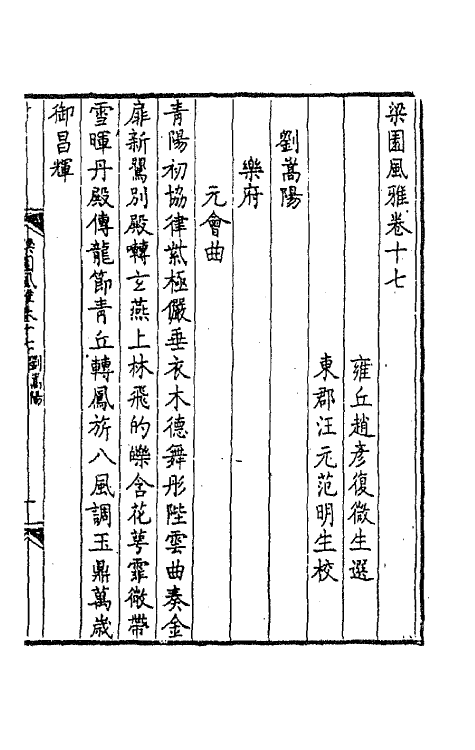 梁園風雅卷十七
雍丘趙彥復微生選
東郡汪元范明生校
劉嵩陽
樂府
元會曲
青陽初協律紫極儼垂衣木德舞彤陛雲曲奏金
扉新鶯別殿囀玄燕上林飛的皪含花萼霏微帶
雪暉丹殿傳龍節青丘轉鳳旂八風調玉鼎萬歲
御昌輝
梁園風雅卷十七
劉嵩陽
一